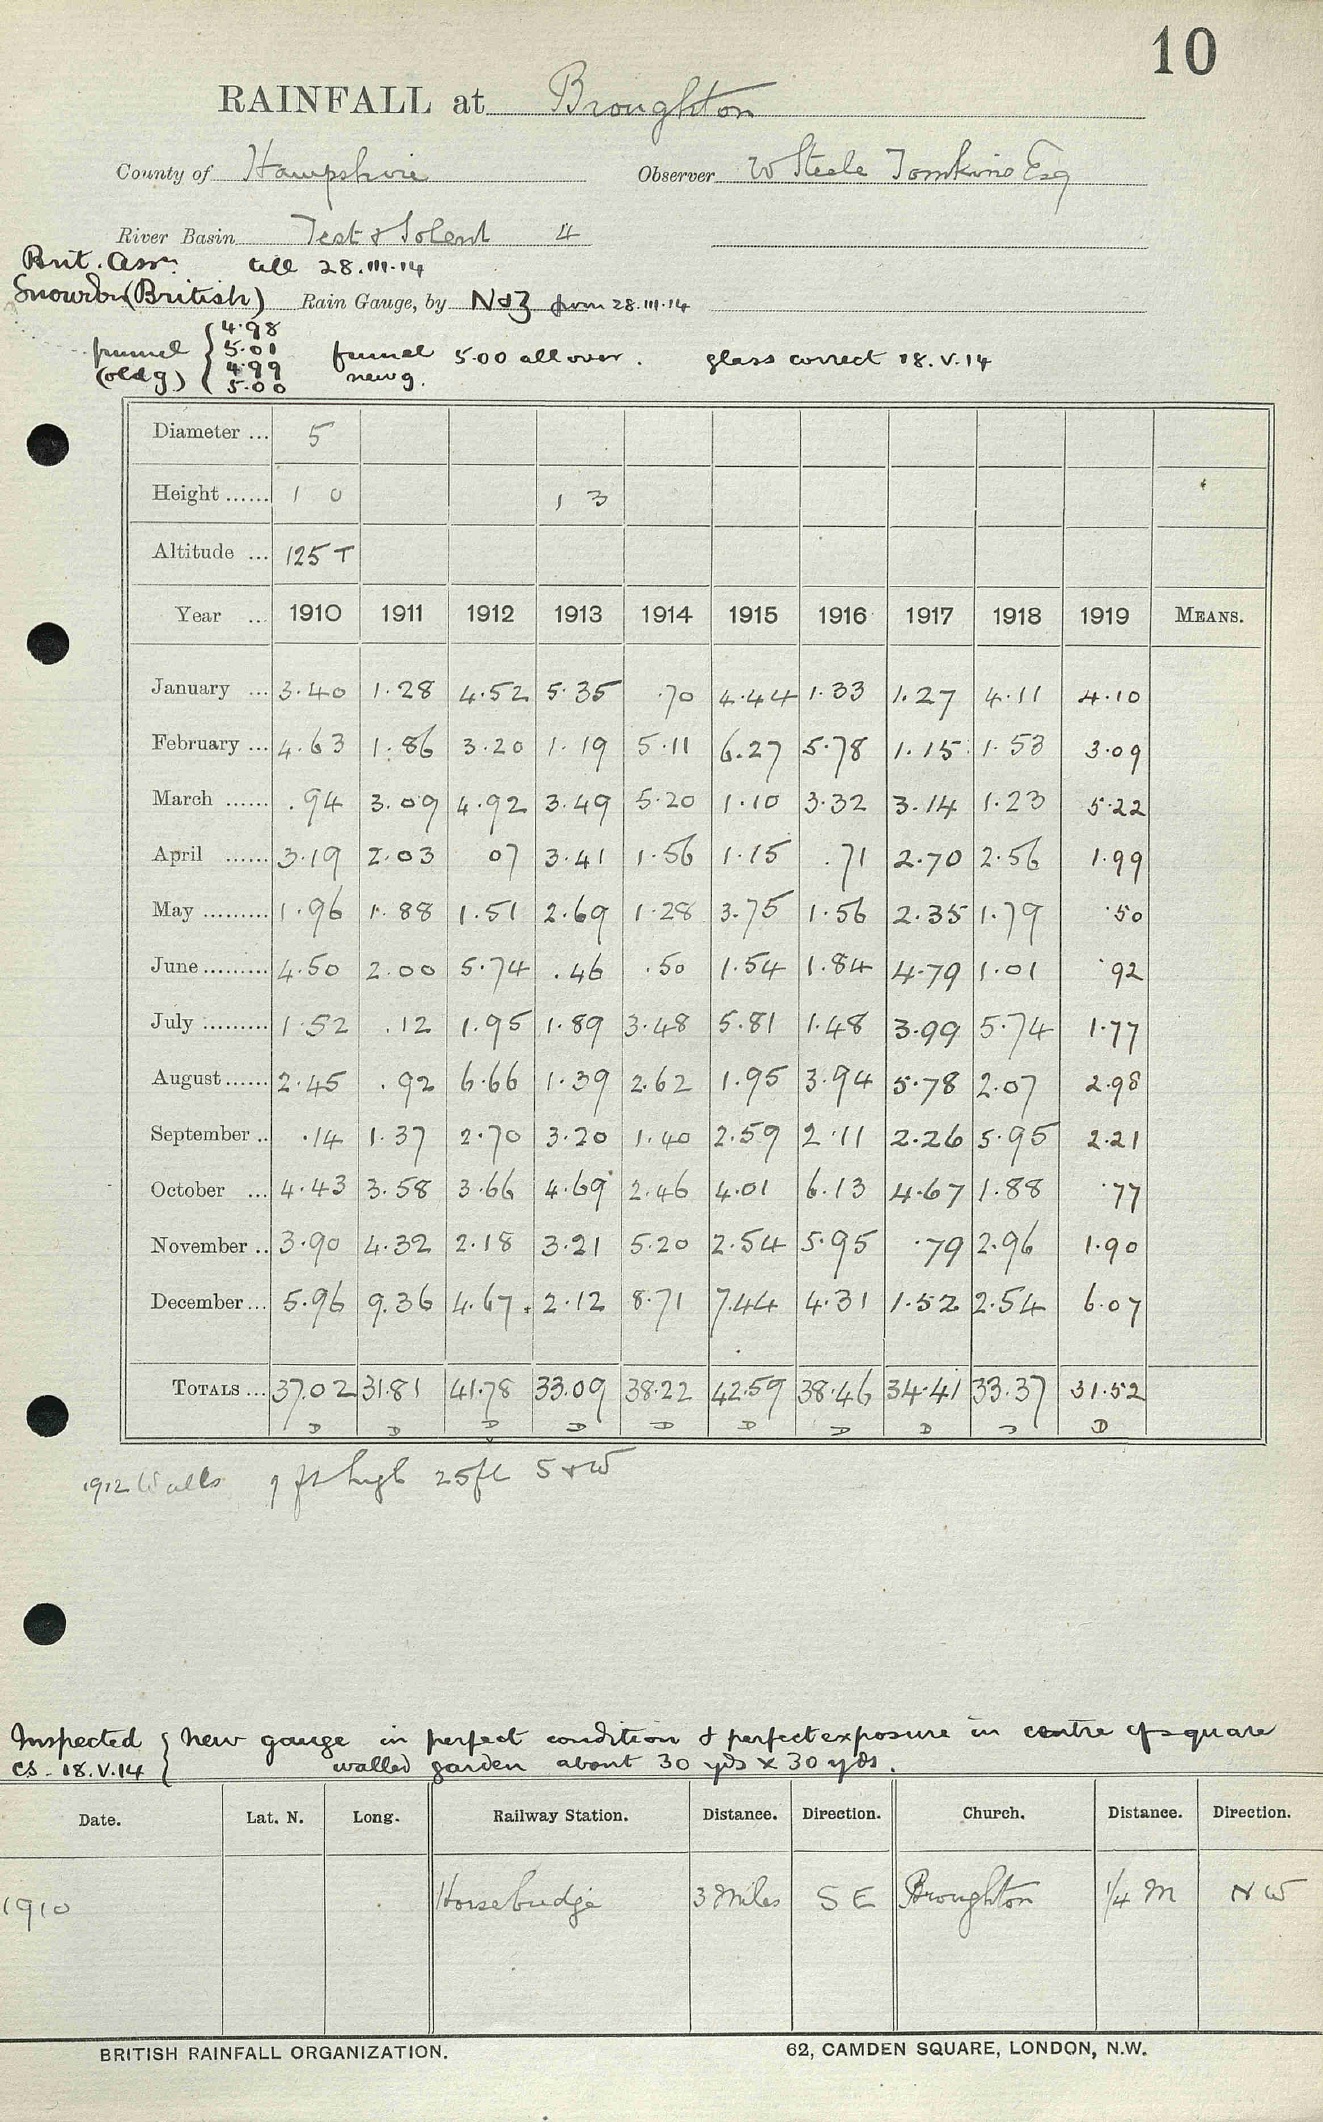 10
RAINFALL at Broughton
County of Hampshire Observer W Steele Tomkins Esq
River Basin Test & Solent 4
Brit. Assn. till 28.III.14
Snowdon (British) Rain Gauge, by N&Z from 28.III.14
funnel (old g) { 4.98 5.01 4.99 5.00 funnel new g. 5.00 all over. glass correct 18.V.14
Diameter ... 5
Height ...... 1 0 1 3
Altitude ... 125 T
Year ... 1910 1911 1912 1913 1914 1915 1916 1917 1918 1919 MEANS.
January ... 3.40 1.28 4.52 5.35 .70 4.44 1.33 1.27 4.11 4.10
February ... 4.63 1.86 3.20 1.19 5.11 6.27 5.78 1.15 1.53 3.09
March ...... .94 3.09 4.92 3.49 5.20 1.10 3.32 3.14 1.23 5.22
April ...... 3.19 2.03 07 3.41 1.56 1.15 .71 2.70 2.56 1.99
May ......... 1.96 1.88 1.51 2.69 1.28 3.75 1.56 2.35 1.79 .50
June ......... 4.50 2.00 5.74 .46 .50 1.54 1.84 4.79 1.01 .92
July ......... 1.52 .12 1.95 1.89 3.48 5.81 1.48 3.99 5.74 1.77
August ...... 2.45 .92 6.66 1.39 2.62 1.95 3.94 5.78 2.07 2.98
September .. .14 1.37 2.70 3.20 1.40 2.59 2.11 2.26 5.95 2.21
October ... 4.43 3.58 3.66 4.69 2.46 4.01 6.13 4.67 1.88 .77
November .. 3.90 4.32 2.18 3.21 5.20 2.54 5.95 .79 2.96 1.90
December ... 5.96 9.36 4.67. 2.12 8.71 7.44 4.31 1.52 2.54 6.07
TOTALS ... 37.02 31.81 41.78 33.09 38.22 42.59 38.46 34.41 33.37 31.52
D D D D D D D D D D
1912 Walls 9 ft high 25 ft S & W
Inspected { New gauge in perfect condition & perfect exposure in centre of square
CS. 18.V.14 walled garden about 30 yds x 30 yds.
Date. Lat. N. Long. Railway Station. Distance. Direction. Church. Distance. Direction.
1910 Horsebridge 3 Miles S E Broughton 1/4 M N W
BRITISH RAINFALL ORGANIZATION. 62, CAMDEN SQUARE, LONDON, N.W.